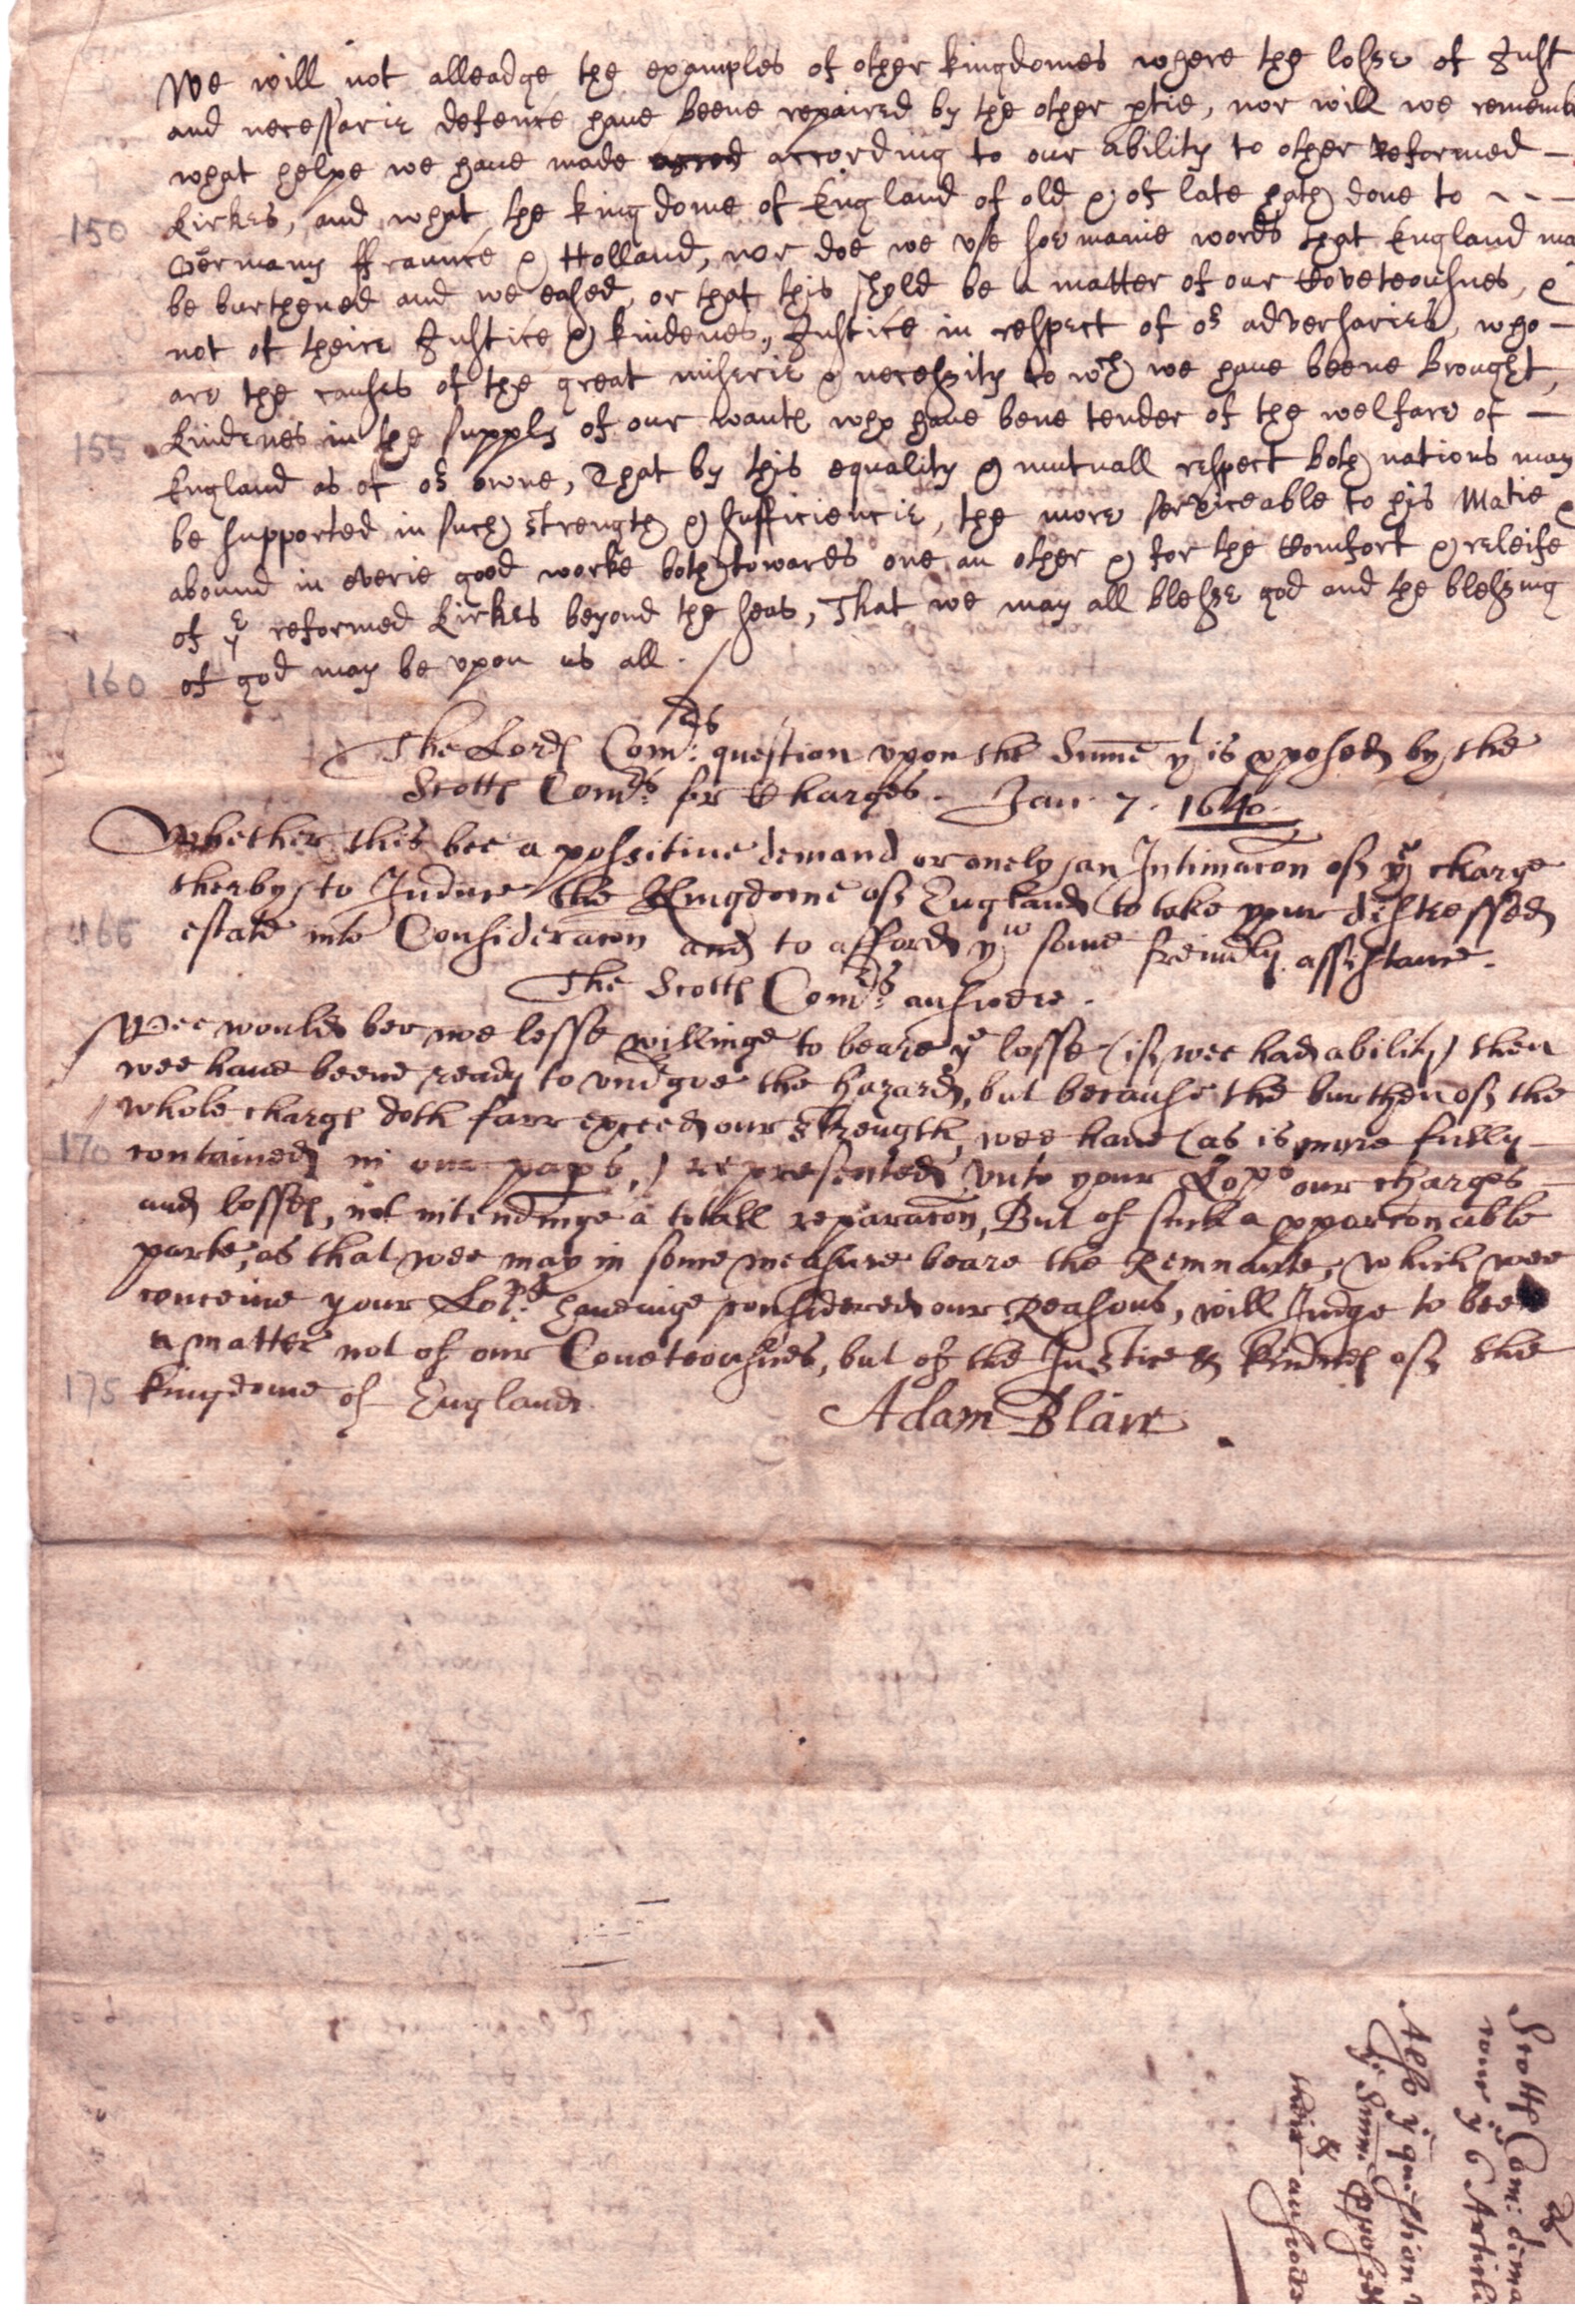 We will not alleadge the examples of other kingdomes where the losse of Just
and necessarie defence have beene repaired by the other ptie, nor will we rememb
what helpe we have made according to our ability to other Reformed —
150 kirkes, and what the kingdome of England of old & of late hath done to - - -
Germany ffraunce & Holland, nor doe we use soe manie words that England ma
be burthened and we eased, or that this shold be a matter of our Coveteousnes, &
not of theire Justice & kindenes, Justice in respect of or adversaries, who —
are the causes of the great miserie & necessity to wch we have beene brought,
155 kindenes in the supply of our wants who have bene tender of the welfare of —
England as of or owne, That by this equality & mutuall respect both nations may
be supported in such strength & sufficiencie, the more serviceable to his Matie &
abound in everie good worke both towards one an other & for the Comfort & releife
of ye reformed kirkes beyond the seas, That we may all blesse god and the blessing
160 of god may be upon us all.
The Lords Comrs: question vpon the Summe yt is pposed by the
Scotts Comrs: for Charges. Jan. 7. 1640.
Whether this bee a possitiue demand or onely an Intimacon of ye charge
therby to Induce the Kingdome of England to take your distressed
165 estate into Consideracon and to afford yw some freindly assistance.
The Scotts Comrs: answere.
Wee would bee noe lesse willinge to beare ye losse (if wee had ability) then
wee haue beene ready to vndgoe the hazard, but because the burthen of the
whole charge doth farr exceed our strength, wee haue (as is more fully —
170 contained in our paps,) represented vnto your Lopps our charges —
and losses, not intendinge a totall reparacon, But of such a pparconable
parte, as that wee may in some measure beare the Remnante, which wee
conceiue your Lopps: haueinge considered our Reasons, will Judge to bee
a matter not of our Coueteousnes, but of the Justice & kindnes of the
175 kingdome of England.
Adam Blair
Scotts Com: dema
ye 6 Article
Also ye question
ye Summe pposed
&
their answere